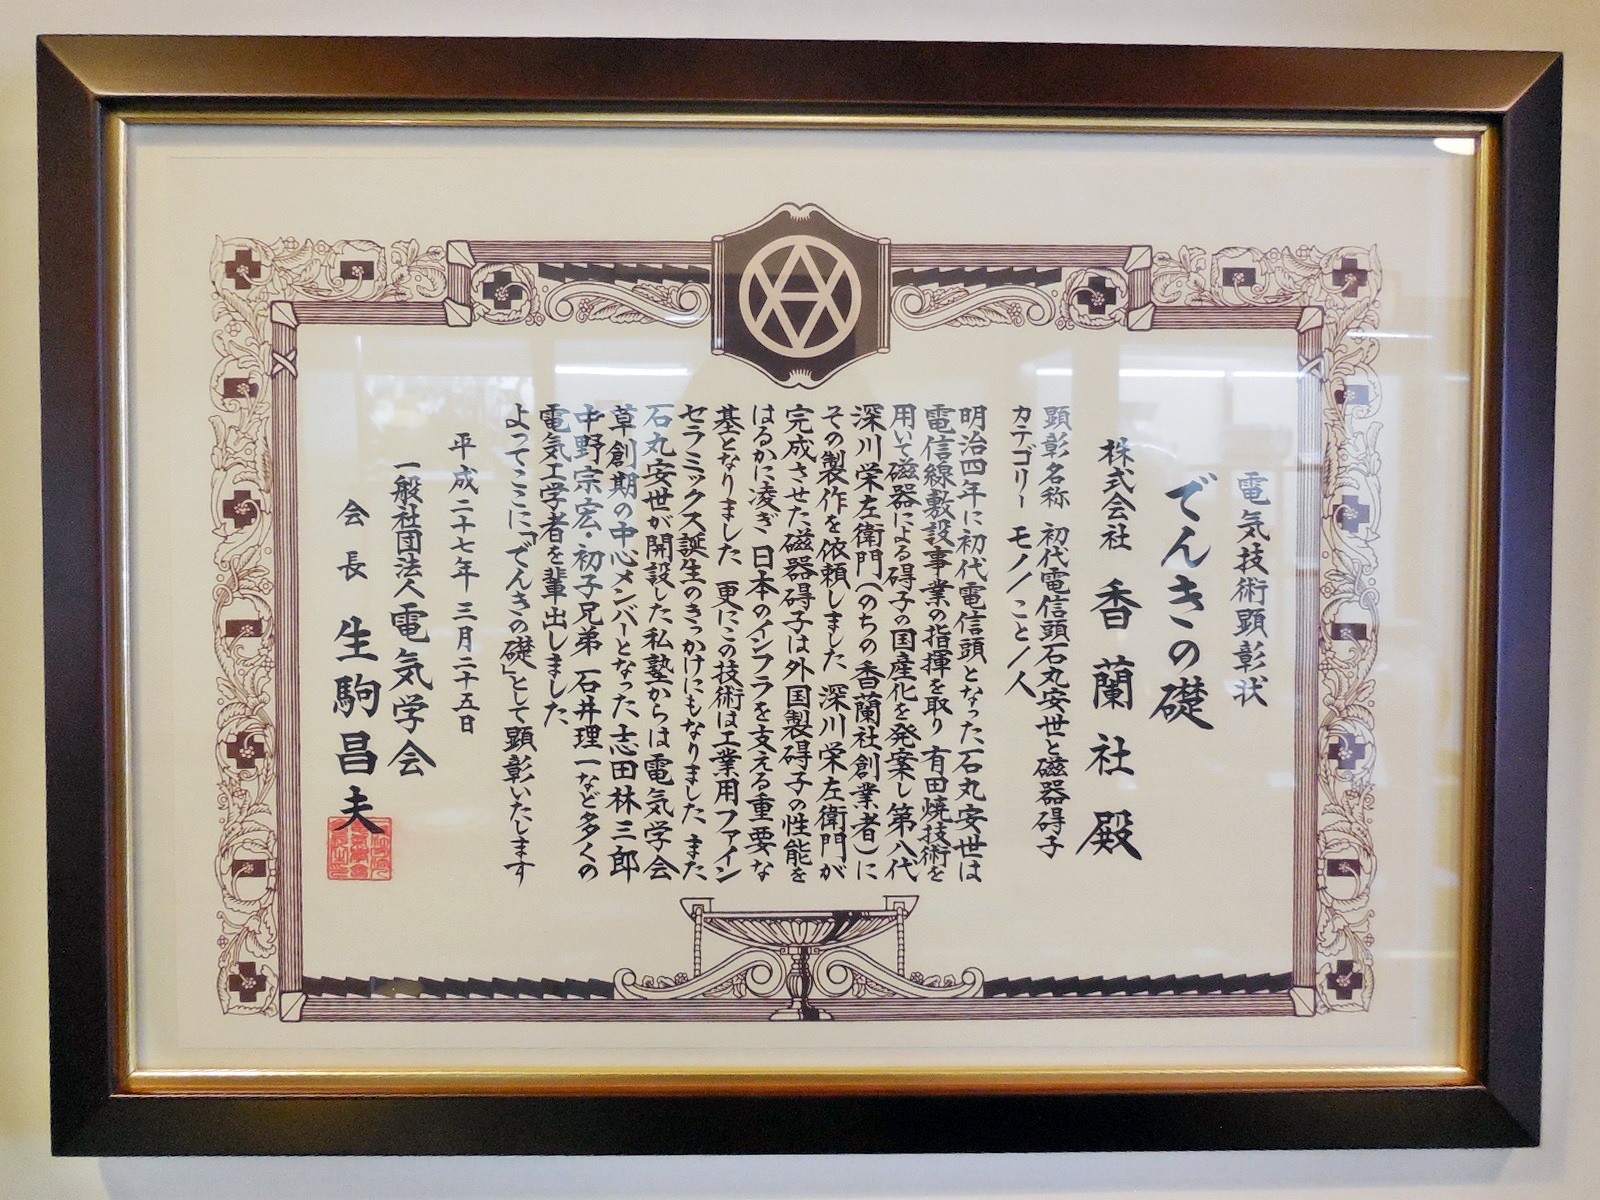 電気技術顕彰状
でんきの礎
株式会社 香蘭社 殿
顕彰名称 初代電信頭石丸安世と磁器碍子
カテゴリー モノ/こと/人
明治四年に初代電信頭となった石丸安世は
電信線敷設事業の指揮を取り 有田焼技術を
用いて磁器による碍子の国産化を発案し第八代
深川栄左衛門(のちの香蘭社創業者)に
その製作を依頼しました 深川栄左衛門が
完成させた磁器碍子は外国製碍子の性能を
はるかに凌ぎ 日本のインフラを支える重要な
基となりました 更にこの技術は工業用ファイン
セラミックス誕生のきっかけにもなりました また
石丸安世が開設した私塾からは電気学会
草創期の中心メンバーとなった志田林三郎
中野宗宏・初子兄弟 石井理一など多くの
電気工学者を輩出しました
よってここに「でんきの礎」として顕彰いたします
平成二十七年三月二十五日
一般社団法人 電気学会
会長 生駒昌夫